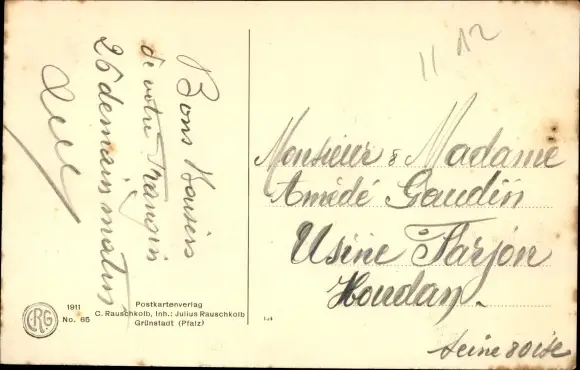 11 12
Bons Baisers
de votre
26 demain matin
Monsieur & Madame
Amédé Gaudin
Usine Farjon
Houdan
Seine & Oise
1911
No. 65
CRG
Postkartenverlag
C. Rauschkolb, Inh.: Julius Rauschkolb
Grünstadt (Pfalz)